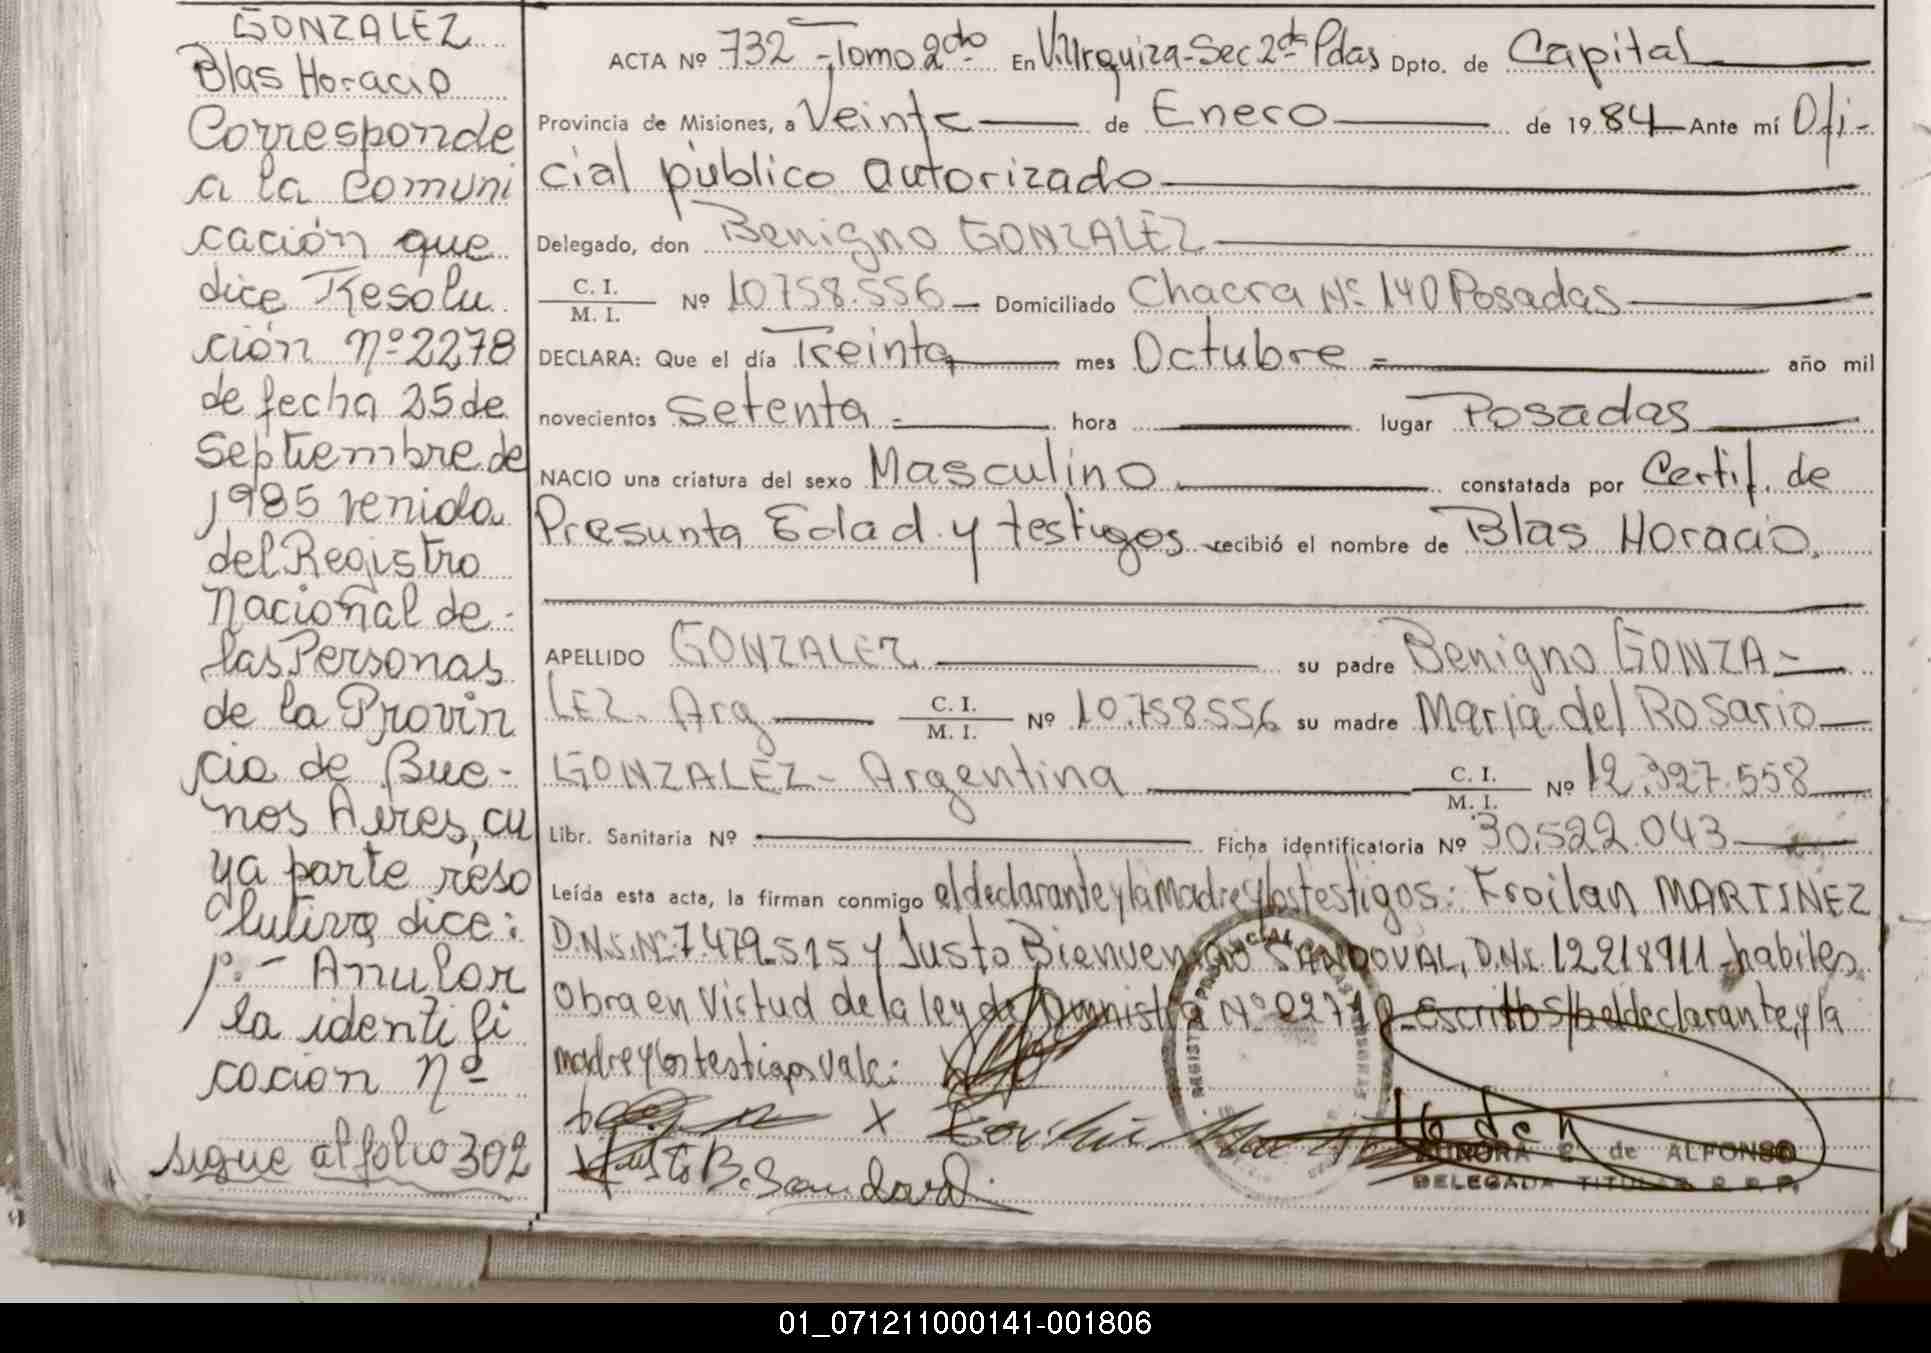 GONZALEZ
Blas Horacio
Corresponde
a la comuni
cación que
dice Resolu
ción nº 2278
de fecha 25 de
septiembre de
1985 venida
del Registro
Nacional de
las Personas
de la Provin
cia de Bue-
nos Aires, cu
ya parte reso
lutiva dice:
1º.- Anular
la identifi
cación nº
sigue al folio 302
ACTA Nº 732 - Tomo 2do En V. Urquiza - Sec 2da Pdas Dpto. de Capital
Provincia de Misiones, a Veinte de Enero de 1984 Ante mí Ofi-
cial público autorizado
Delegado, don Benigno GONZALEZ
C. I. / M. I. Nº 10.758.556 Domiciliado Chacra Nº 140 Posadas
DECLARA: Que el día Treinta mes Octubre = año mil
novecientos Setenta = hora lugar Posadas
NACIO una criatura del sexo Masculino constatada por Certif. de
Presunta Edad y testigos recibió el nombre de Blas Horacio.
APELLIDO GONZALEZ su padre Benigno GONZA-
LEZ. Arg C. I. / M. I. Nº 10.758.556 su madre María del Rosario
GONZALEZ - Argentina C. I. / M. I. Nº 12.327.558
Libr. Sanitaria Nº Ficha identificatoria Nº 30.522.043
Leída esta acta, la firman conmigo el declarante y la madre y los testigos: Froilan MARTINEZ
D.N.I. Nº 7.479.515 y Justo Bienvenido SANDOVAL, D.N.I. 12.218.911 - habiles.
Obra en Victud de la ley de Amnistía Nº 22710 - Escritos S/b el declarante, y la
madre y los testigos vale:
X
Justo B. Sandoval
AURORA E. de ALFONSO
DELEGADA TITULAR R.P.P.
01_071211000141-001806